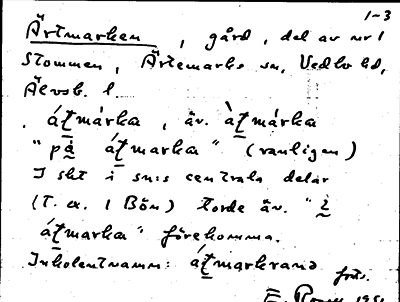 1-3
Ärtmarken, gård, del av nr 1
Stommen, Ärtemarks sn, Vedbo hd,
Älvsb. l.
átmárka, äv. àtmárka
"på átmarka" (vanligen)
I skt i sn:s centrala delar
(T. ex. 1 Bön) torde äv. "i
átmarka" förekomma.
Inbolentnamn: átmarkrand
forts.